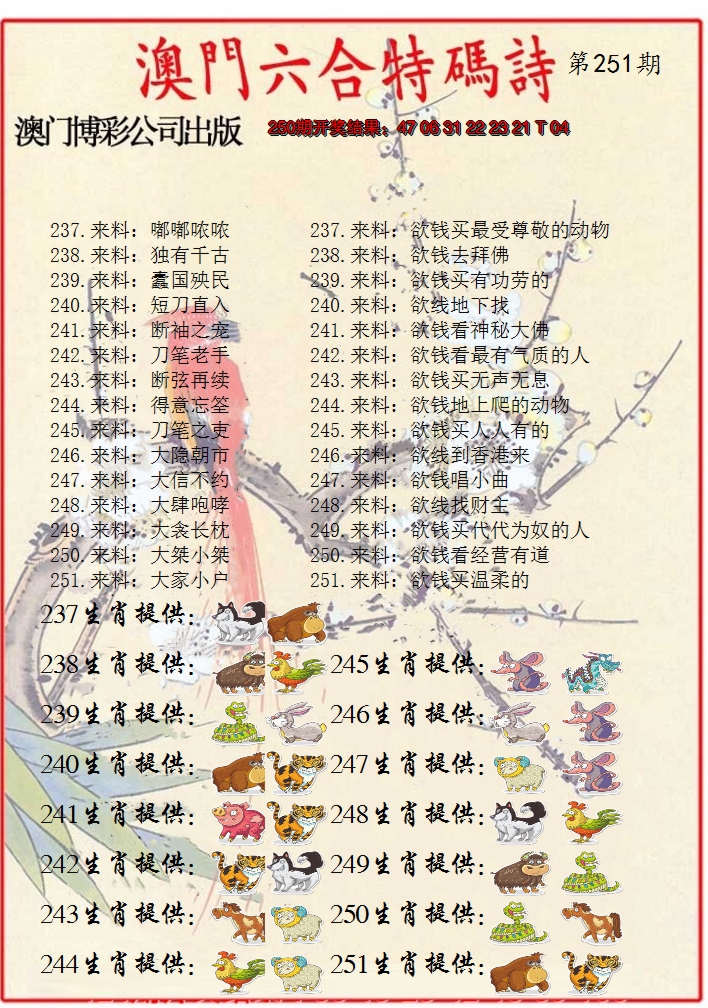 澳門六合特碼詩 第251期
澳门博彩公司出版 250期开奖结果：47 06 31 22 23 21 T 04
237.来料：嘟嘟哝哝 237.来料：欲钱买最受尊敬的动物
238.来料：独有千古 238.来料：欲钱去拜佛
239.来料：蠹国殃民 239.来料：欲钱买有功劳的
240.来料：短刀直入 240.来料：欲线地下找
241.来料：断袖之宠 241.来料：欲钱看神秘大佛
242.来料：刀笔老手 242.来料：欲钱看最有气质的人
243.来料：断弦再续 243.来料：欲钱买无声无息
244.来料：得意忘筌 244.来料：欲钱地上爬的动物
245.来料：刀笔之吏 245.来料：欲钱买人人有的
246.来料：大隐朝市 246.来料：欲线到香港来
247.来料：大信不约 247.来料：欲钱唱小曲
248.来料：大肆咆哮 248.来料：欲线找财主
249.来料：大衾长枕 249.来料：欲钱买代代为奴的人
250.来料：大桀小桀 250.来料：欲钱看经营有道
251.来料：大家小户 251.来料：欲钱买温柔的
237生肖提供：
238生肖提供： 245生肖提供：
239生肖提供： 246生肖提供：
240生肖提供： 247生肖提供：
241生肖提供： 248生肖提供：
242生肖提供： 249生肖提供：
243生肖提供： 250生肖提供：
244生肖提供： 251生肖提供：